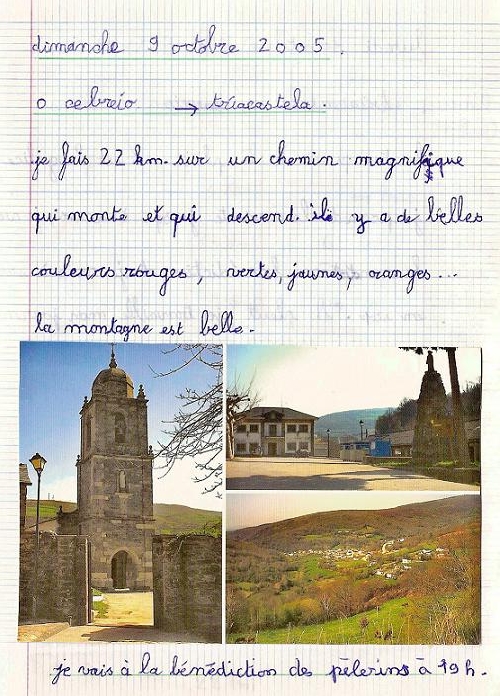 dimanche 9 octobre 2005.
o cebreio → triacastela.
je fais 22 km. sur un chemin magnifique
qui monte et qui descend. il y a de belles
couleurs rouges, vertes, jaunes, oranges...
la montagne est belle.
je vais à la bénédiction des pèlerins à 19h.